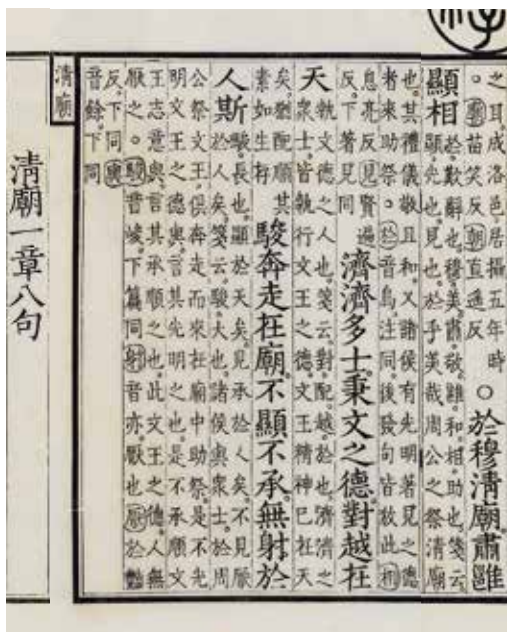 之耳成洛邑居攝五年時
○廟苗笑反朝直遥反
○於穆清廟肅雝
顯相
於歎辭也穆美肅敬雝和相助也箋云
顯光也見也於乎美哉周公之祭清廟
也其禮儀敬且和又諸侯有光明著見之德
者來助祭○於音烏注同後發句皆放此相
息亮反見賢遍
反下著見同
濟濟多士秉文之德對越在
天
執文德之人也箋云對配越於也濟濟之
衆士皆執行文王之德文王精神已在天
矣猶配順其
素如生存
駿奔走在廟不顯不承無射於
人斯
駿長也顯於天矣見承於人矣不見厭
於人矣箋云駿大也諸侯與衆士於周
公祭文王俱奔走而來在廟中助祭是不光
明文王之德與言其光明之也是不承順文
王志意與言其承順之也此文王之德人無
厭之○駿音峻下篇同射音亦厭也厭於豔
反下同與
音餘下同
清廟
清廟一章八句